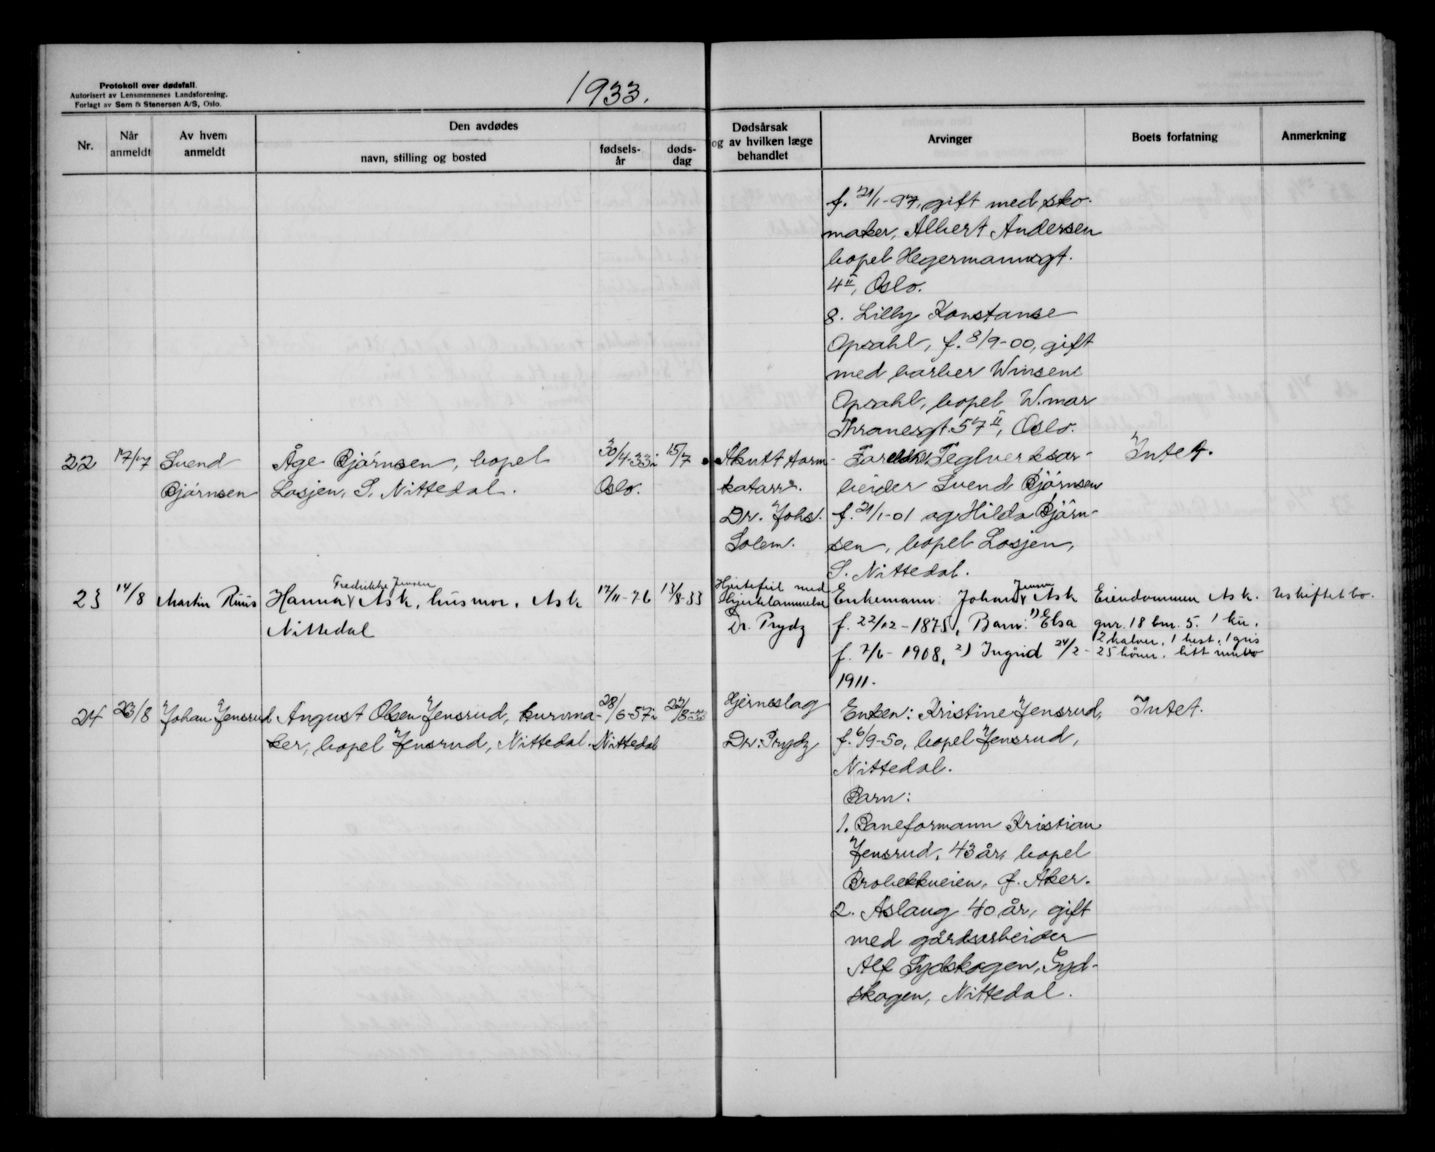 Protokoll over dødsfall.
Autorisert av Lensmennenes Landsforening.
Forlagt av Sem & Stenersen A/S, Oslo.
1933.
Nr.
Når anmeldt
Av hvem anmeldt
Den avdødes
navn, stilling og bosted
fødselsår
dødsdag
Dødsårsak og av hvilken læge behandlet
Arvinger
Boets forfatning
Anmerkning
f. 21/1-97, gift med sko-
maker, Albert Andersen
bopel Hegermannsgt.
4 II, Oslo.
8. Lilly Konstanse
Opsahl, f. 8/9-00, gift
med barber Winsent
Opsahl, bopel W.mar
Thranesgt. 57 II, Oslo.
22
17/7
Svend
Bjørnsen
Åge Bjørnsen, bopel
Losjen, S. Nittedal.
30/4-33 i
Oslo.
15/7
Akutt tarm-
katarr.
Dr. Johs.
Solem.
Foreldre: Teglverksar-
beider Svend Bjørnsen
f. 21/1-01 og Hilda Bjørn-
sen, bopel Losjen,
S. Nittedal.
Intet.
23
14/8
Martin Ruus
Fredrikke Jensen
Hanna Ask, husmor, Ask
Nittedal
17/11-76
13/8-33
Hjertefeil med
hjertelammelse
Dr. Prydz
Enkemann: Johan Jensen Ask
f. 22/12-1875, Barn: 1) Elsa
f. 7/6-1908, 2) Ingrid 24/2-
1911.
Eiendommen Ask.
gnr. 18 bnr. 5. 1 ku,
2 kalver, 1 hest, 1 gris
25 høner, litt innbo
Uskiftet bo.
24
23/8
Johan Jensrud
August Olsen Jensrud, kurvma-
ker, bopel Jensrud, Nittedal.
28/6-57 i
Nittedal
22/8-33
Hjerneslag
Dr. Prydz
Enken: Kristine Jensrud,
f. 6/9-50, bopel Jensrud,
Nittedal.
Barn:
1. Baneformann Kristian
Jensrud, 43 år, bopel
Brobekkveien, Ø. Aker.
2. Aslaug 40 år, gift
med gårdsarbeider
Alf Sydskogen, Syd-
skogen, Nittedal.
Intet.